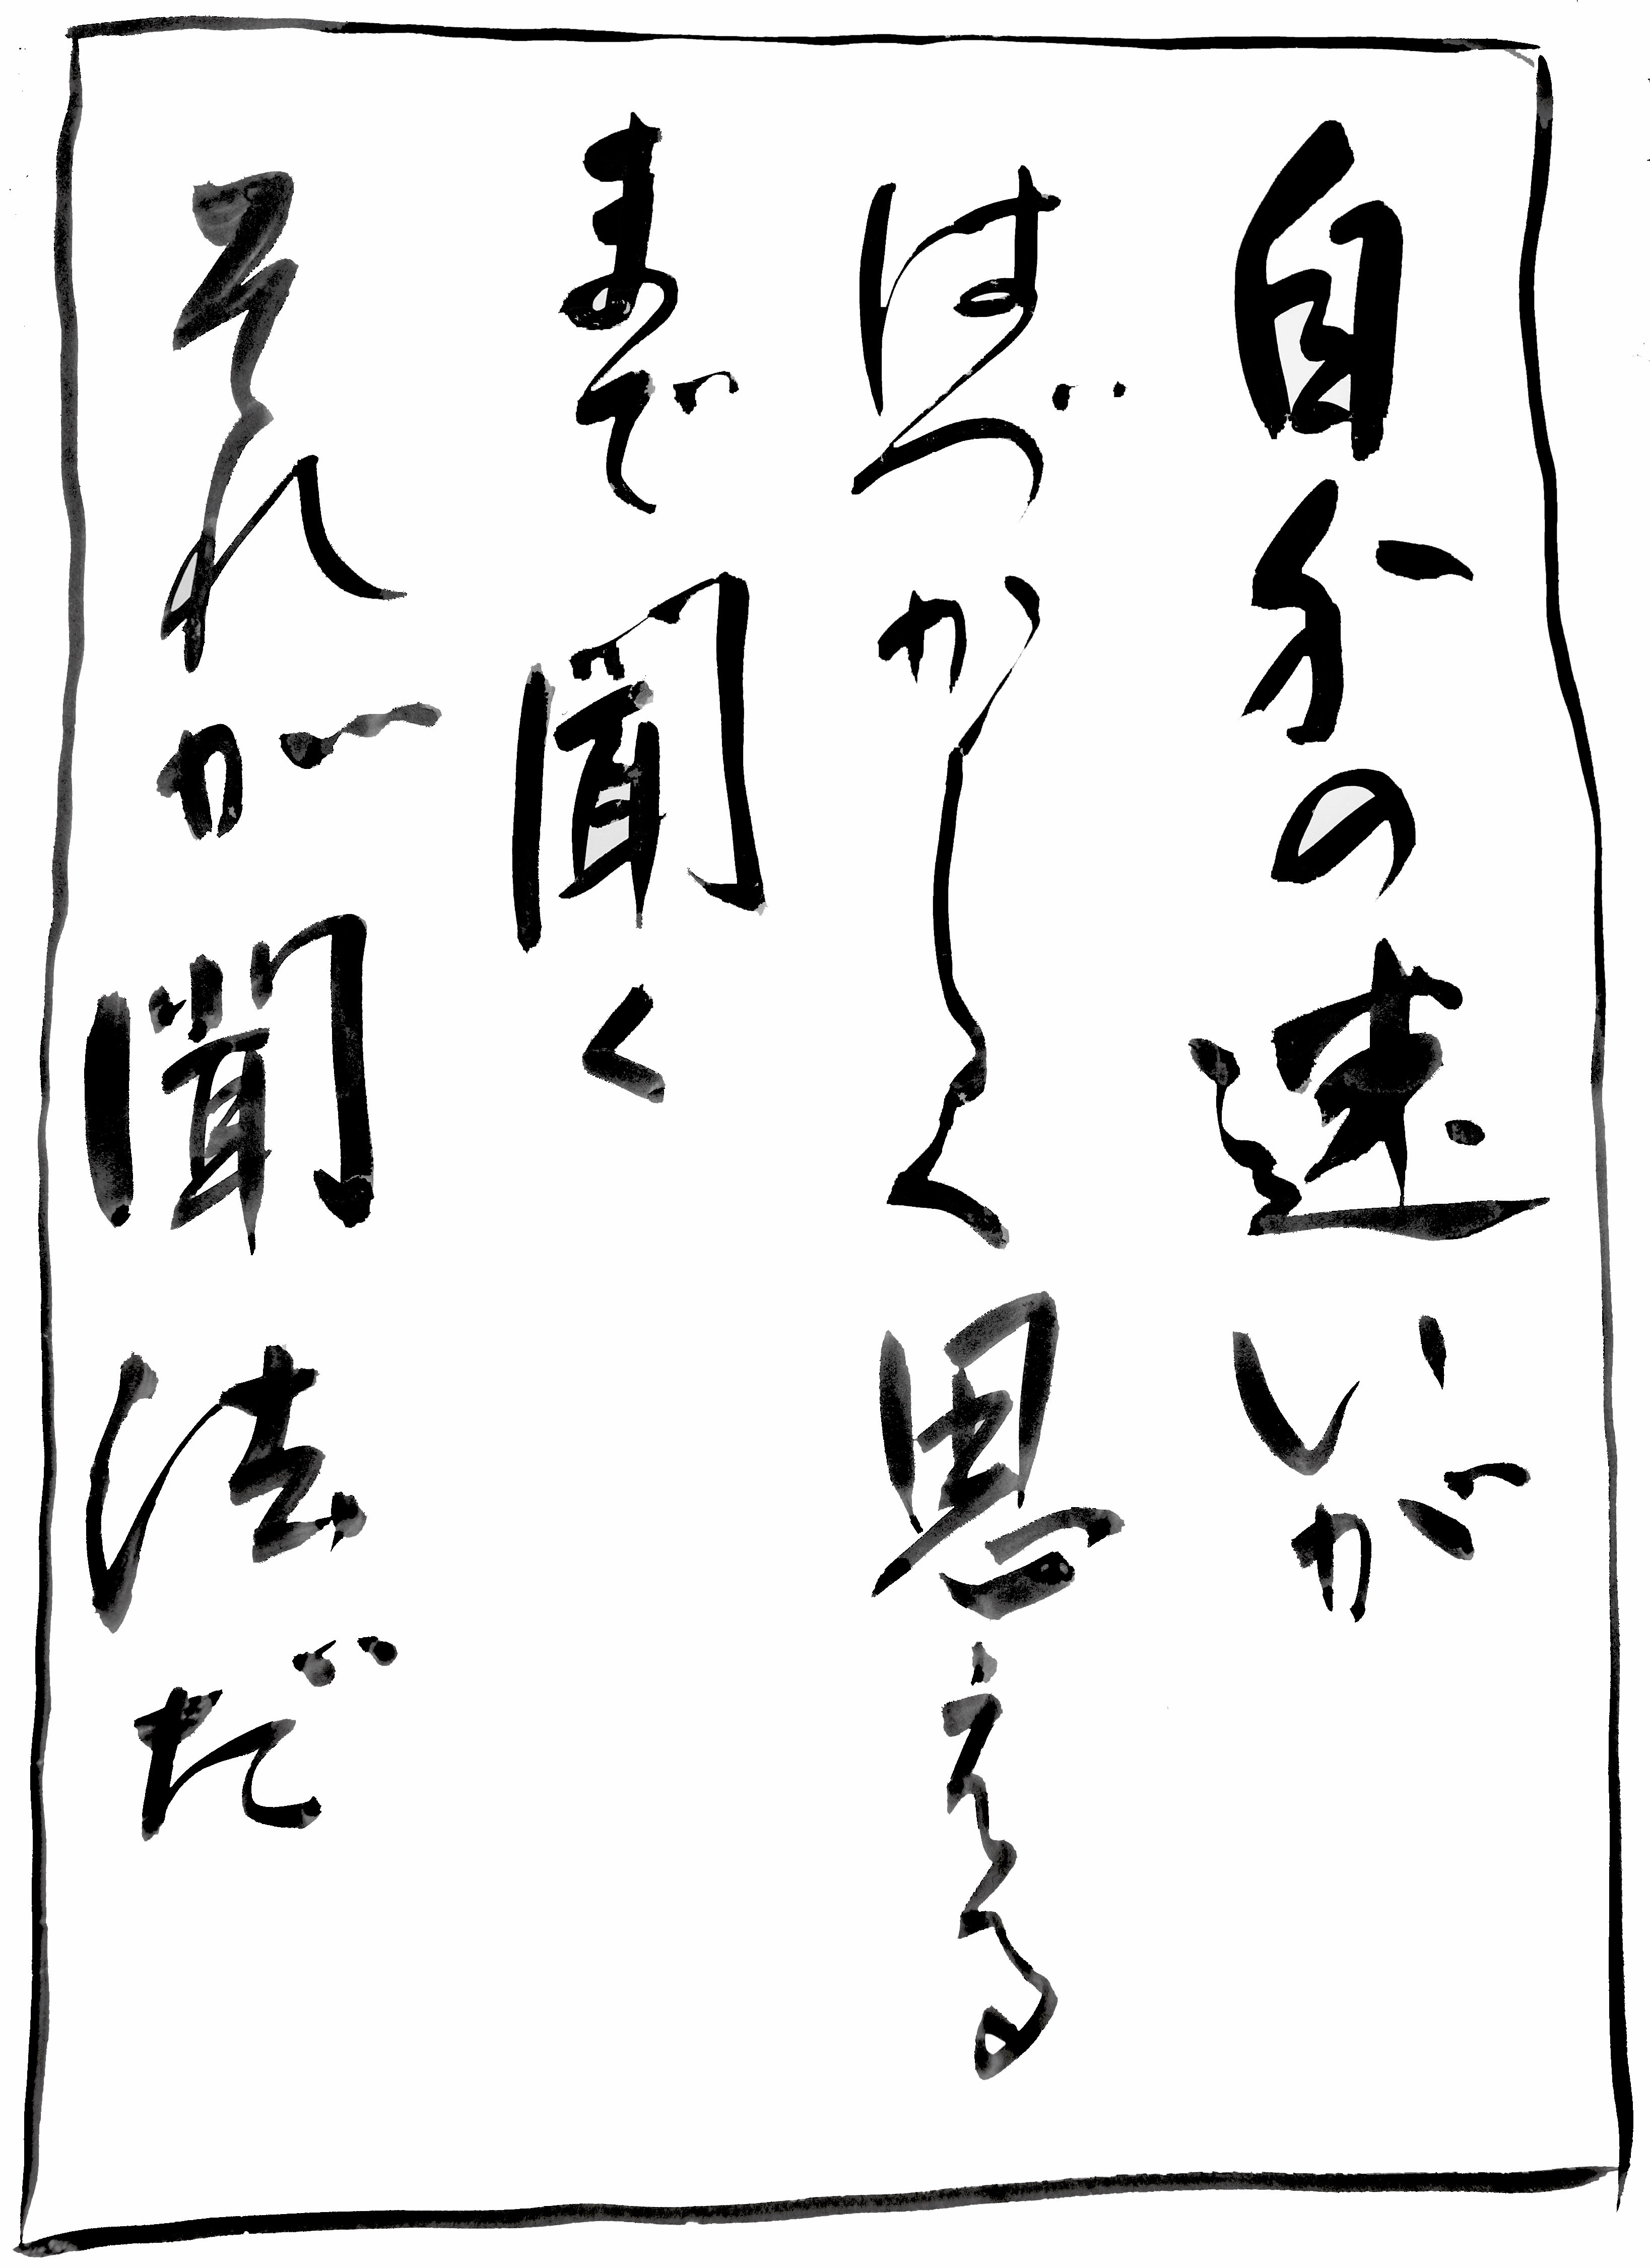 自分の迷いが
はづかしく思える
まで聞く
それが聞法だ